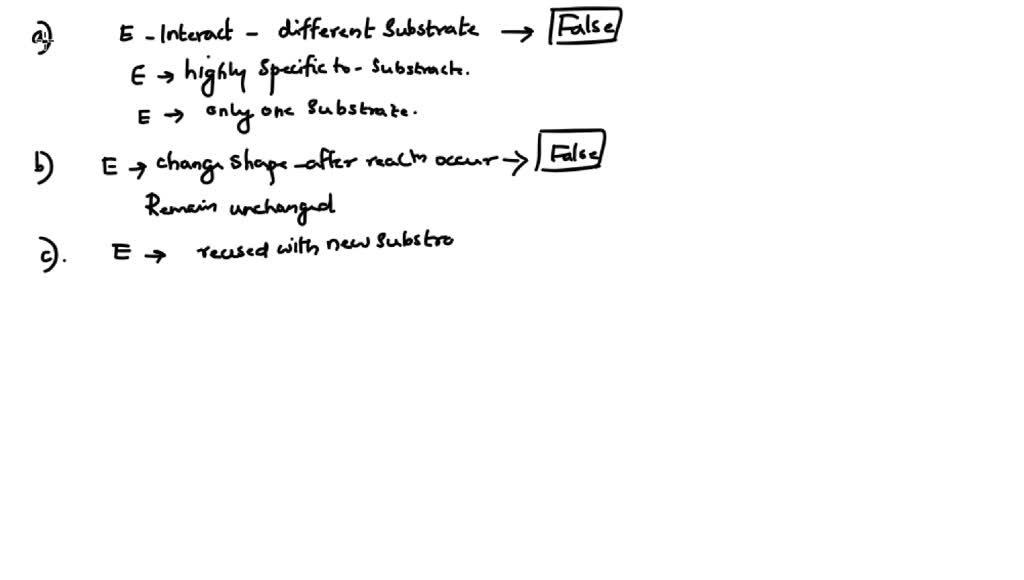 a) E - Interact - different Substrate → False
E → highly specific to - Substrack.
E → only one Substrate.
b) E → change shape - after reactn occur → False
Remain unchanged
c). E → reused with new Substra